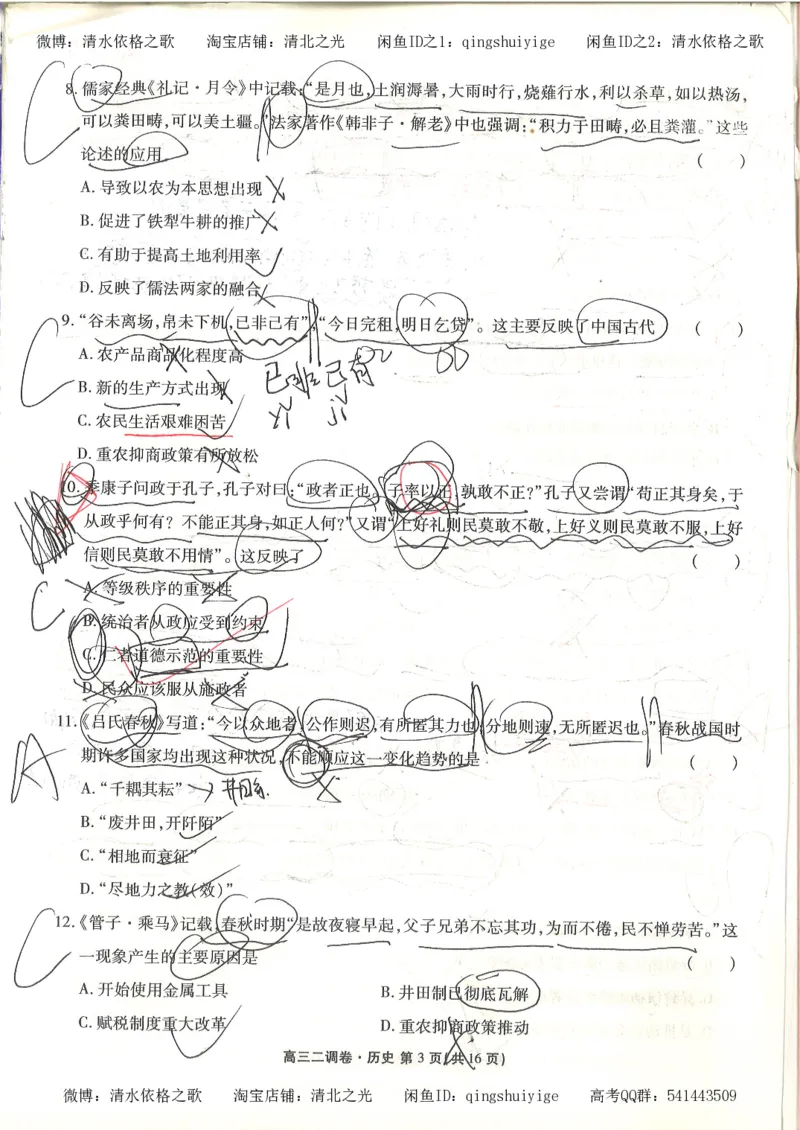 微博：清水依格之歌 淘宝店铺：清北之光 闲鱼ID之1：qingshuiyige 闲鱼ID之2：清水依格之歌
C
8. 儒家经典《礼记·月令》中记载：“是月也，土润溽暑，大雨时行，烧薙行水，利以杀草，如以热汤，
可以粪田畴，可以美土疆。”法家著作《韩非子·解老》中也强调：“积力于田畴，必且粪灌。”这些
论述的应用 （ ）
A. 导致以农为本思想出现
B. 促进了铁犁牛耕的推广
C. 有助于提高土地利用率
D. 反映了儒法两家的融合
C
9. “谷未离场，帛未下机，已非己有”，“今日完租，明日乞贷”。这主要反映了中国古代 （ ）
A. 农产品商品化程度高
已非己有
B. 新的生产方式出现
yǐ jǐ
C. 农民生活艰难困苦
D. 重农抑商政策有所放松
10. 季康子问政于孔子，孔子对曰：“政者正也。子率以正，孰敢不正？”孔子又尝谓“苟正其身矣，于
从政乎何有？不能正其身，如正人何？”又谓“上好礼则民莫敢不敬，上好义则民莫敢不服，上好
信则民莫敢不用情”。这反映了 （ ）
C
A. 等级秩序的重要性
B. 统治者从政应受到约束
C. 仁者道德示范的重要性
D. 民众应该服从施政者
11. 《吕氏春秋》写道：“今以众地者，公作则迟，有所匿其力也；分地则速，无所匿迟也。”春秋战国时
A
期许多国家均出现这种状况，不能顺应这一变化趋势的是 （ ）
A. “千耦其耘” → 井田制.
B. “废井田，开阡陌”
C. “相地而衰征”
D. “尽地力之教（效）”
C
12. 《管子·乘马》记载，春秋时期“是故夜寝早起，父子兄弟不忘其功，为而不倦，民不惮劳苦。”这
一现象产生的主要原因是 （ ）
A. 开始使用金属工具 B. 井田制已彻底瓦解
C. 赋税制度重大改革 D. 重农抑商政策推动
高三二调卷·历史 第 3 页（共 16 页）
微博：清水依格之歌 淘宝店铺：清北之光 闲鱼ID：qingshuiyige 高考QQ群：541443509